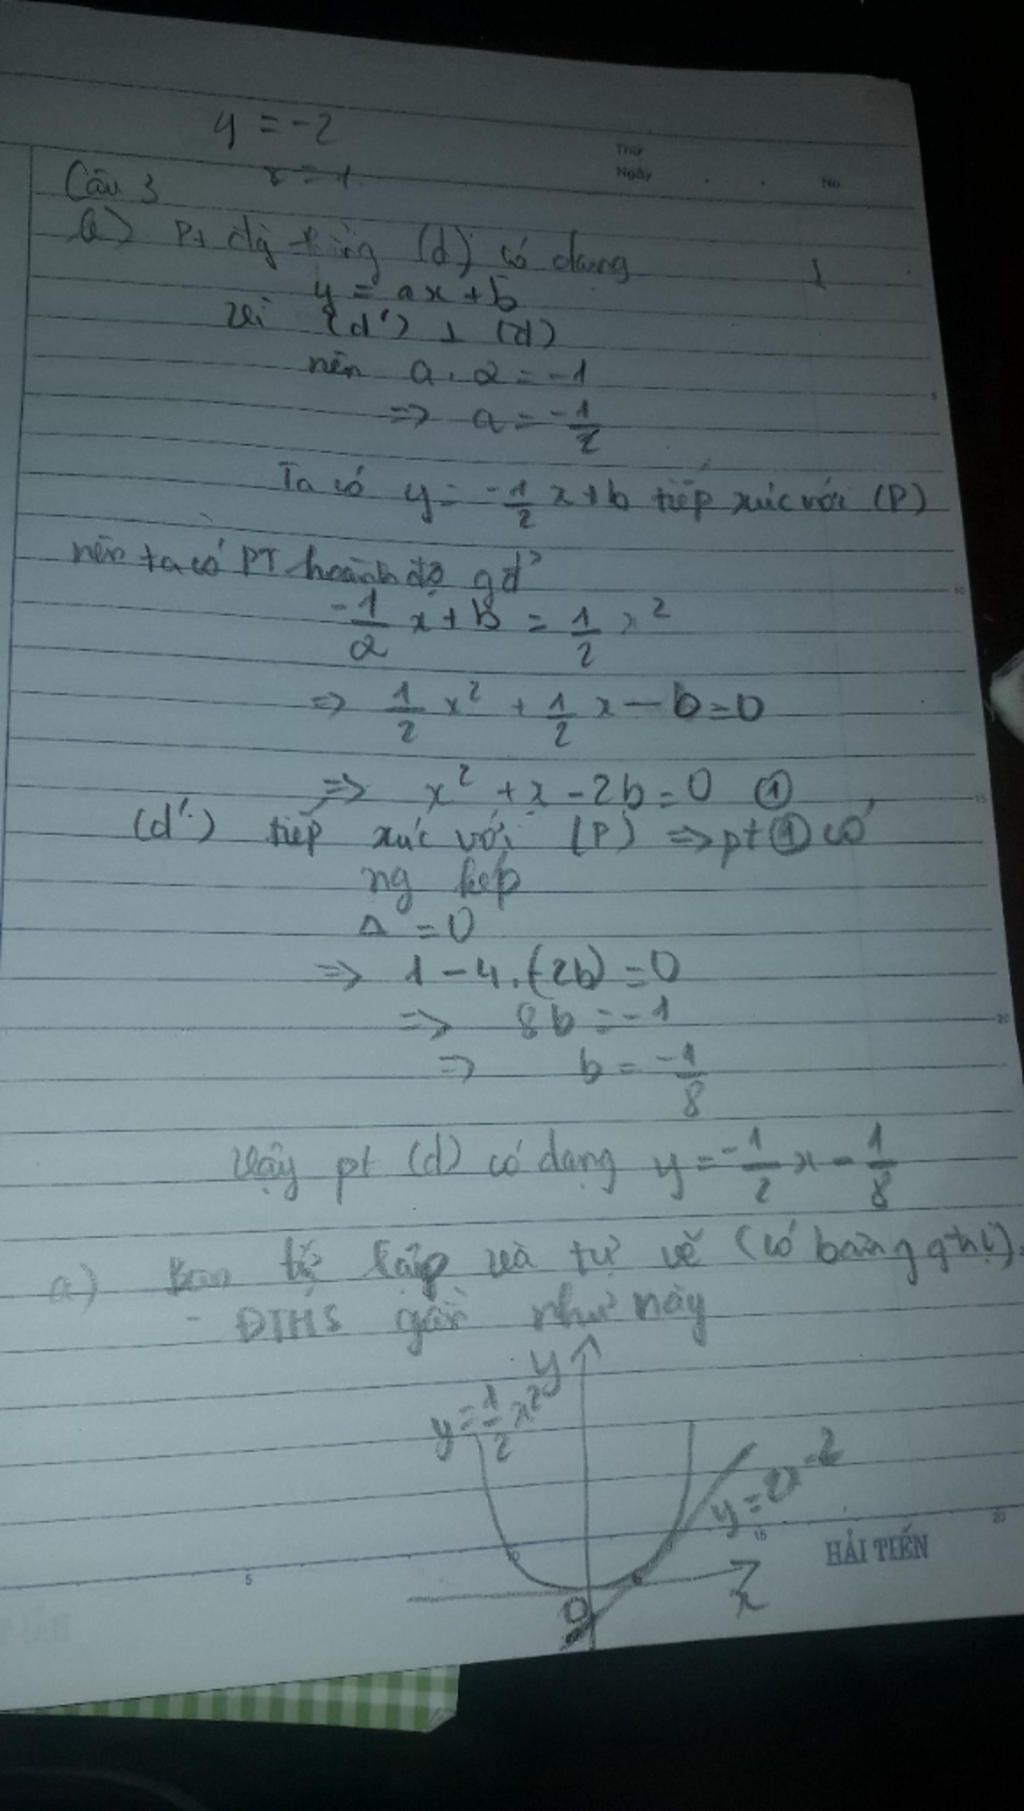 y = -2
x = 1
Thứ
Ngày
No
Câu 3
Pt đg thẳng (d') có dạng
y = ax + b
vì (d') ⊥ (d)
nên a . 2 = -1
=> a = -1/2
Ta có y = -1/2 x + b tiếp xúc với (P)
nên ta có PT hoành độ gđ
-1/2 x + b = 1/2 x²
=> 1/2 x² + 1/2 x - b = 0
=> x² + x - 2b = 0 ①
(d') tiếp xúc với (P) => pt ① có
ng kép
Δ = 0
=> 1 - 4.(-2b) = 0
=> 8b = -1
=> b = -1/8
Vậy pt (d) có dạng y = -1/2 x - 1/8
a) Bạn tự lập và tự vẽ (có bảng gthị).
- ĐTHS gần như này
y
y = 1/2 x²
y = 2x - 2
15
20
HẢI TIẾN
10
5
x
O